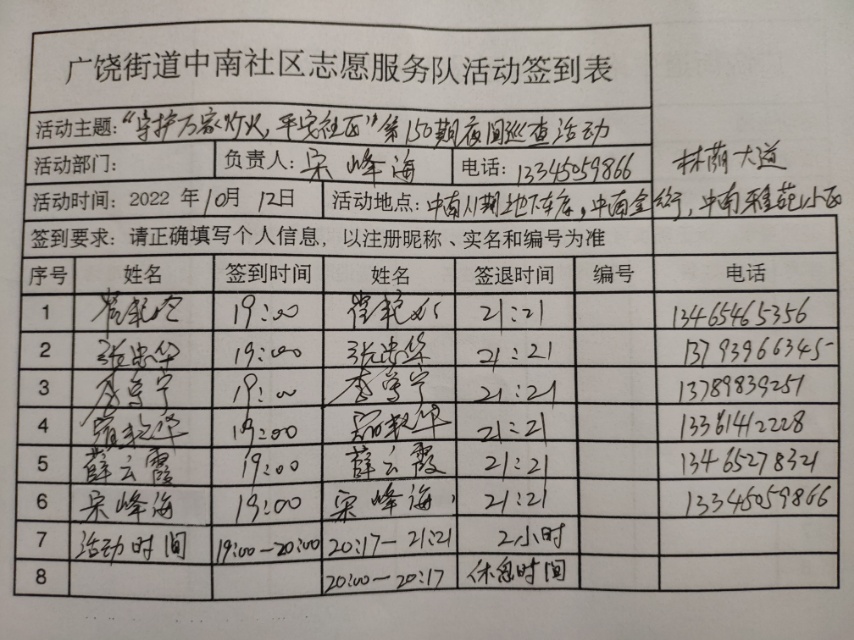 广饶街道中南社区志愿服务队活动签到表
活动主题:“守护万家灯火,平安社区”第150期夜间巡查活动
活动部门: 负责人: 宋峰海 电话: 13345059866 林荫大道
活动时间: 2022 年 10月 12日 活动地点: 中南11期地下车库,中南金街,中南雅苑小区
签到要求: 请正确填写个人信息,以注册昵称、实名和编号为准
序号 姓名 签到时间 姓名 签退时间 编号 电话
1 19:00 21:21 13465465356
2 张忠华 19:00 张忠华 21:21 13793966345
3 李雪宁 19:00 李雪宁 21:21 13789839251
4 19:00 21:21 13361412228
5 薛云霞 19:00 薛云霞 21:21 13465278321
6 宋峰海 19:00 宋峰海 21:21 13345059866
7 活动时间 19:00—20:00 20:17—21:21 2小时
8 20:00—20:17 休息时间